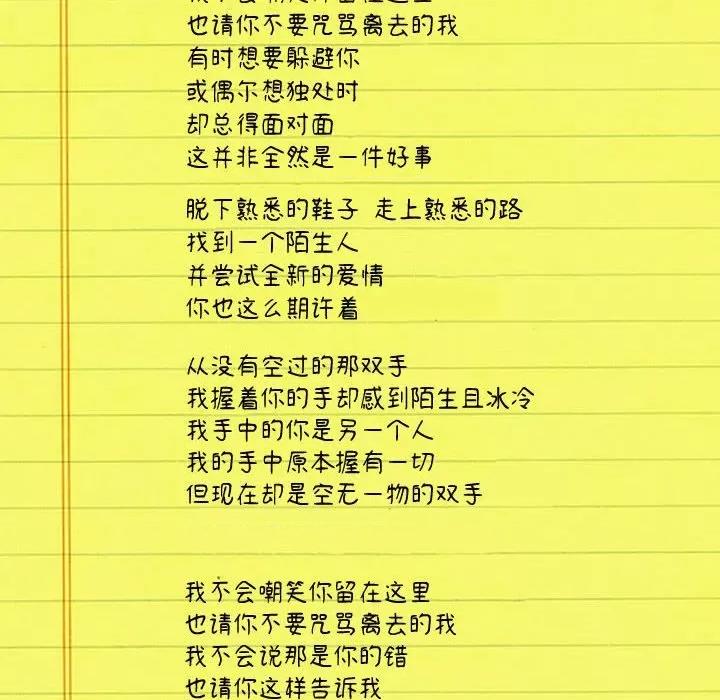 也请你不要咒骂离去的我
有时想要躲避你
或偶尔想独处时
却总得面对面
这并非全然是一件好事
脱下熟悉的鞋子 走上熟悉的路
找到一个陌生人
并尝试全新的爱情
你也这么期许着
从没有空过的那双手
我握着你的手却感到陌生且冰冷
我手中的你是另一个人
我的手中原本握有一切
但现在却是空无一物的双手
我不会嘲笑你留在这里
也请你不要咒骂离去的我
我不会说那是你的错
也请你这样告诉我